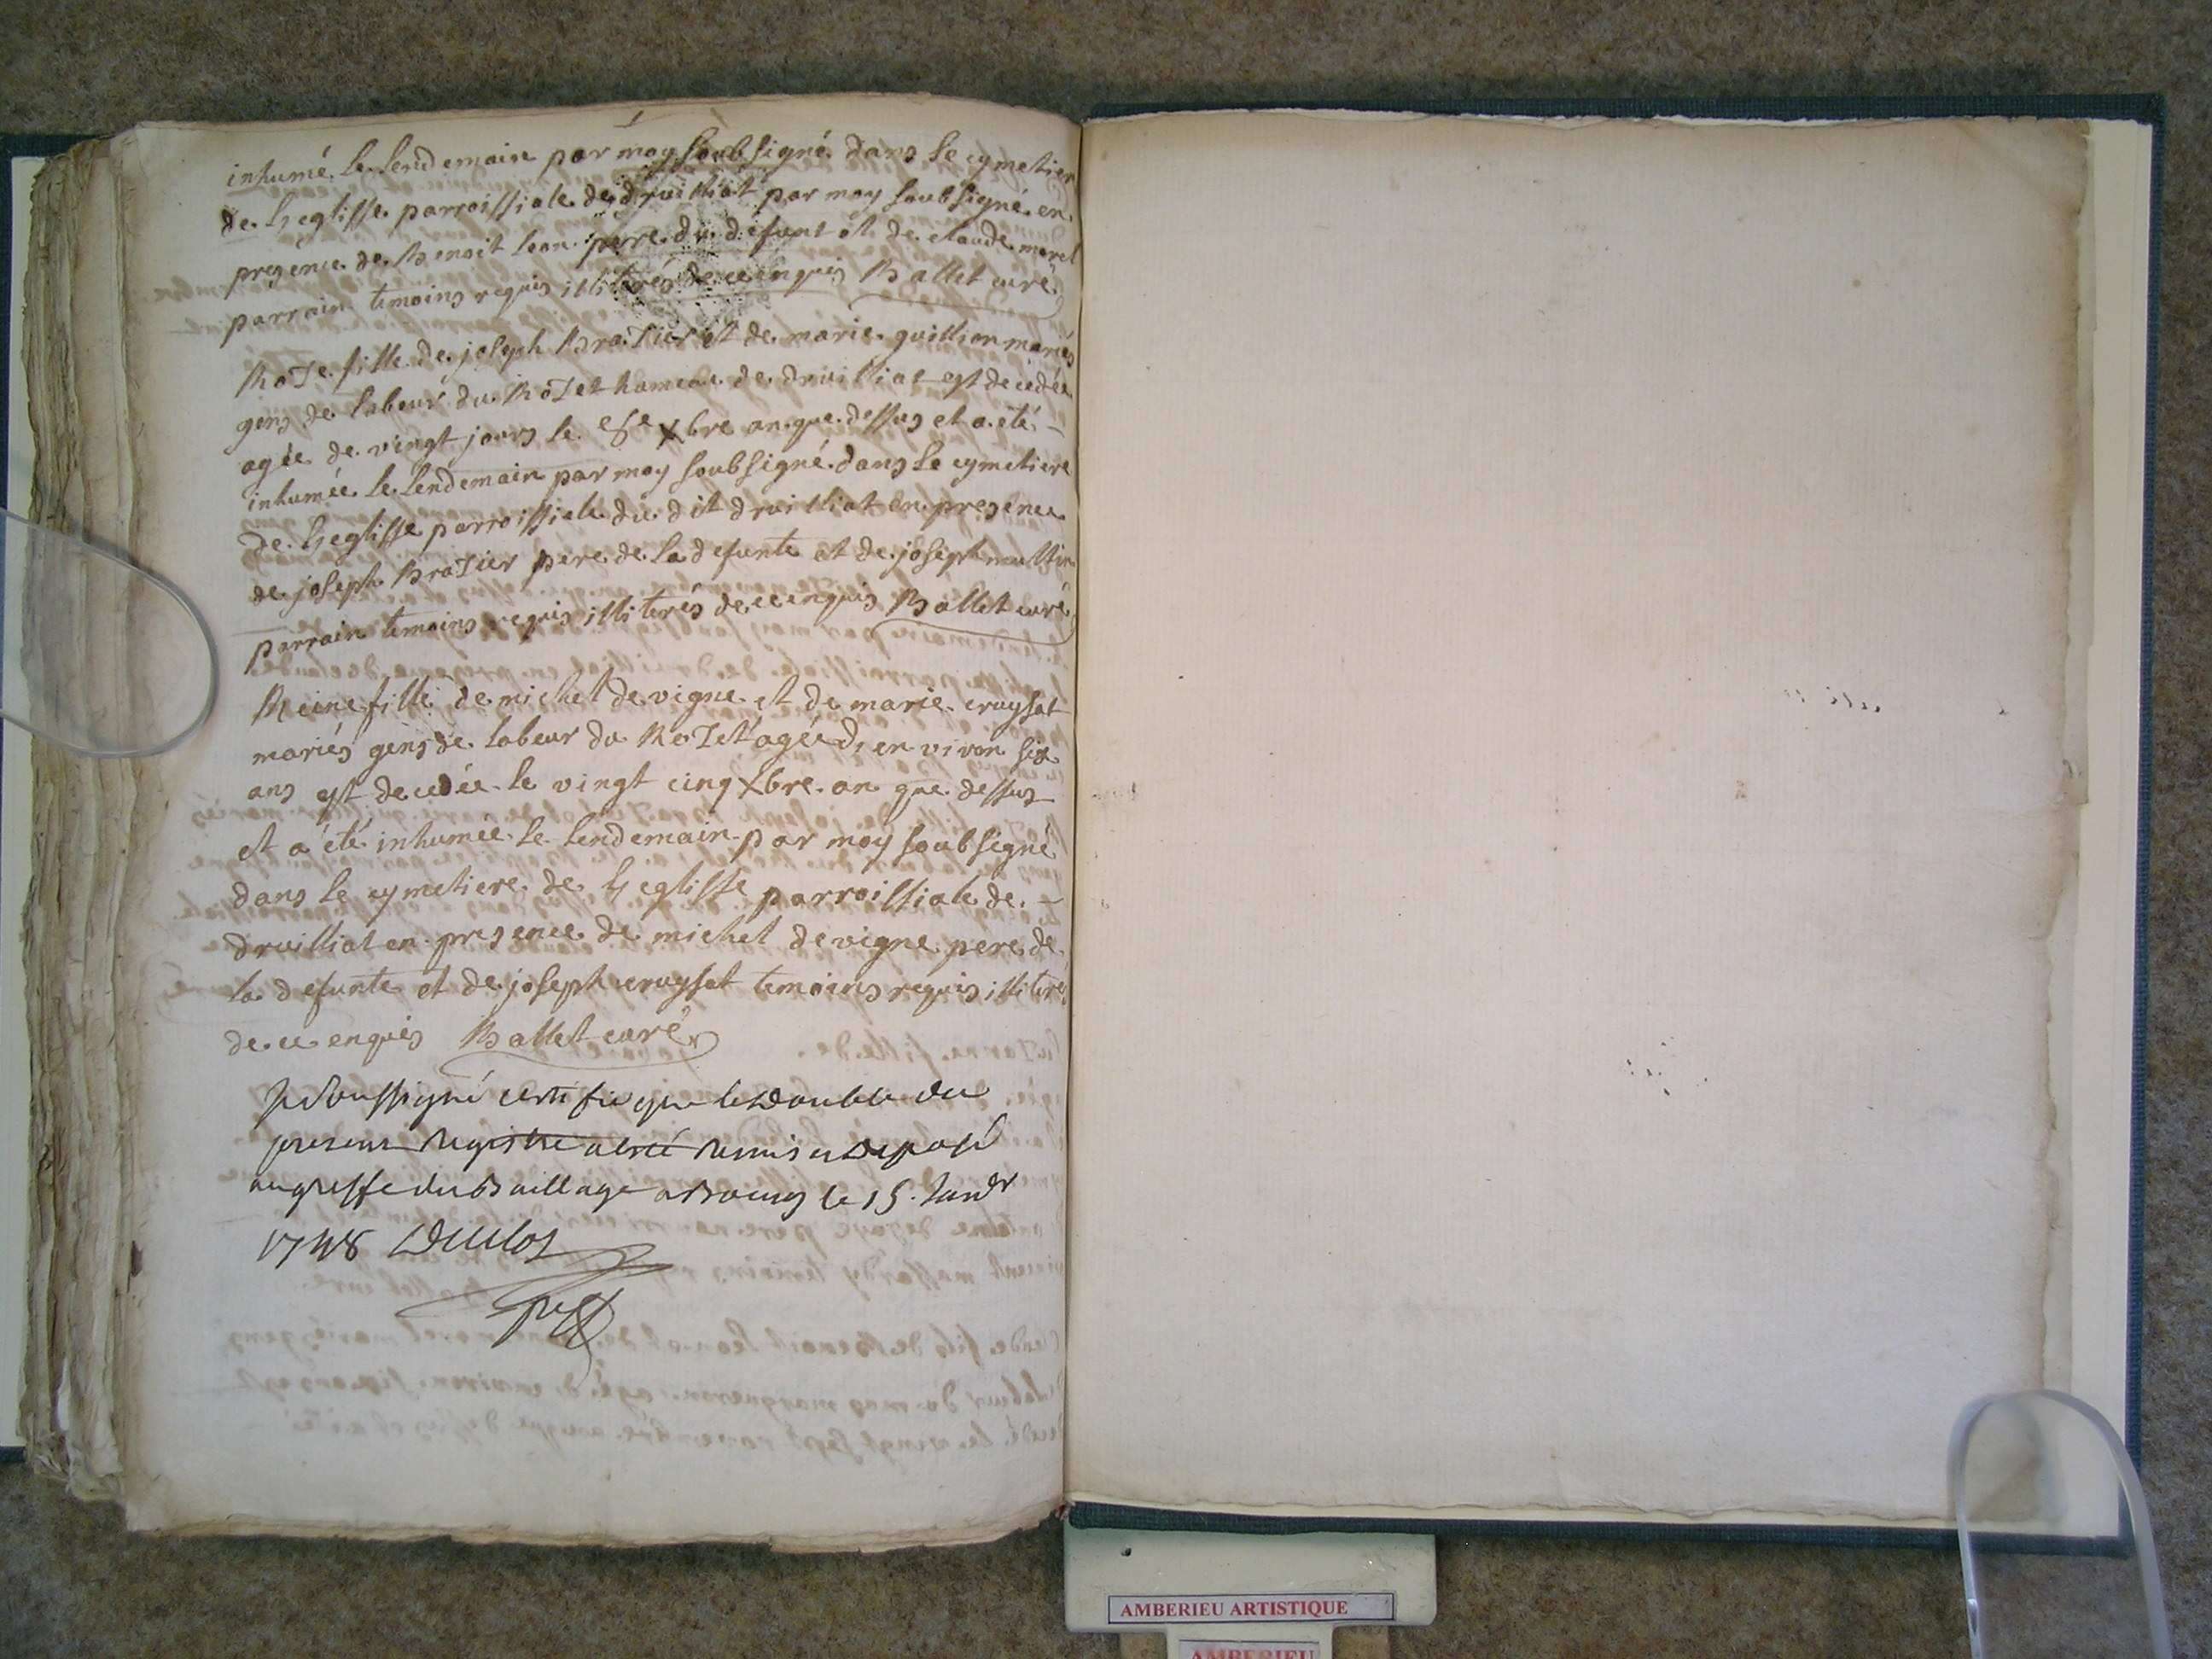 inhumé le lendemain par moy soubsigné dans le cymetiere
de L'eglisse parroissiale de druilliat par moy soubsigné en
presence de Benoit leon perre du defunt et de claude morel
parrain temoins requis illiterés de ce enquis Ballet curé
Rose fille de joseph Brasier et de marie guillion mariés
gens de labeur du Roset hameau de druilliat est decedée
agée de vingt jours le xbre an que dessus et a eté
inhumée le lendemain par moy soubsigné dans le cymetiere
de L'eglisse parroissiale du dit druilliat en presence
de joseph Brasier pere de la defunte et de joseph
parrain temoins requis illiterés de ce enquis Ballet curé
Reine fille de michel devigne et de marie cruysat
mariés gens de labeur du Roset agée d'environ six
ans est decedée le vingt cinq Xbre an que dessus
et a été inhumée le lendemain par moy soubsigné
dans le cymetiere de L'eglisse parroissiale de
druilliat en presence de michel devigne pere de
la defunte et de joseph cruysat temoins requis illiterés
de ce enquis Ballet curé
Je soussigné certifie que le Double du
present Registre a été Remis et Deposé
au greffe du Baillage a Bourg le 15. Janvr
1748 Duclos
AMBERIEU ARTISTIQUE
AMBERIEU